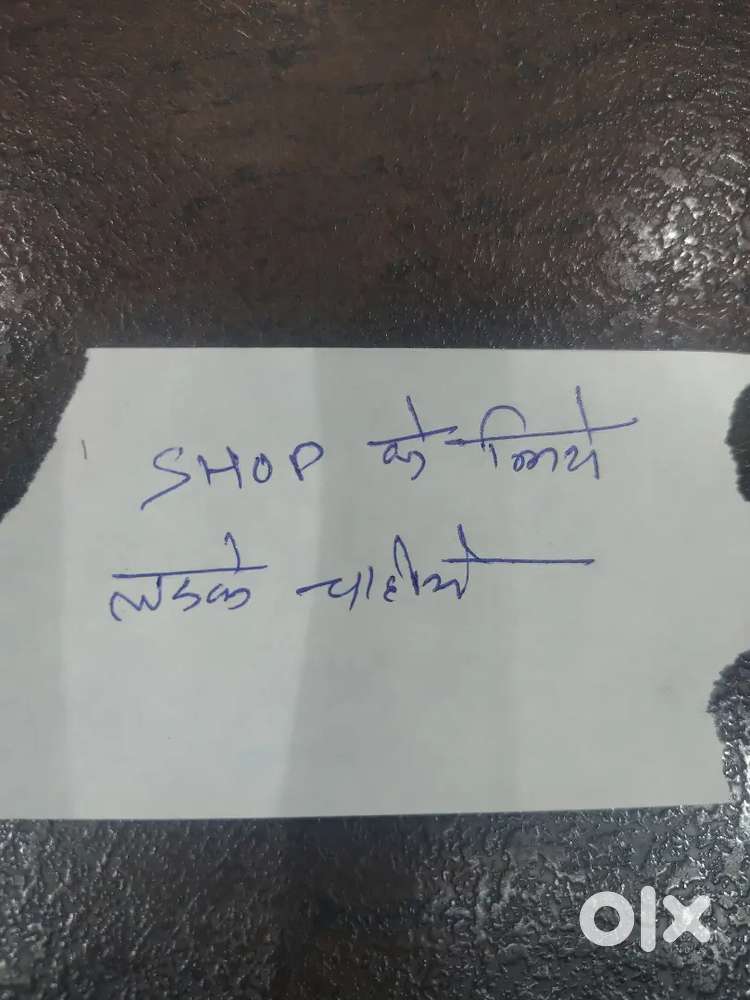 SHOP के लिये
लडके चाहीये
olx